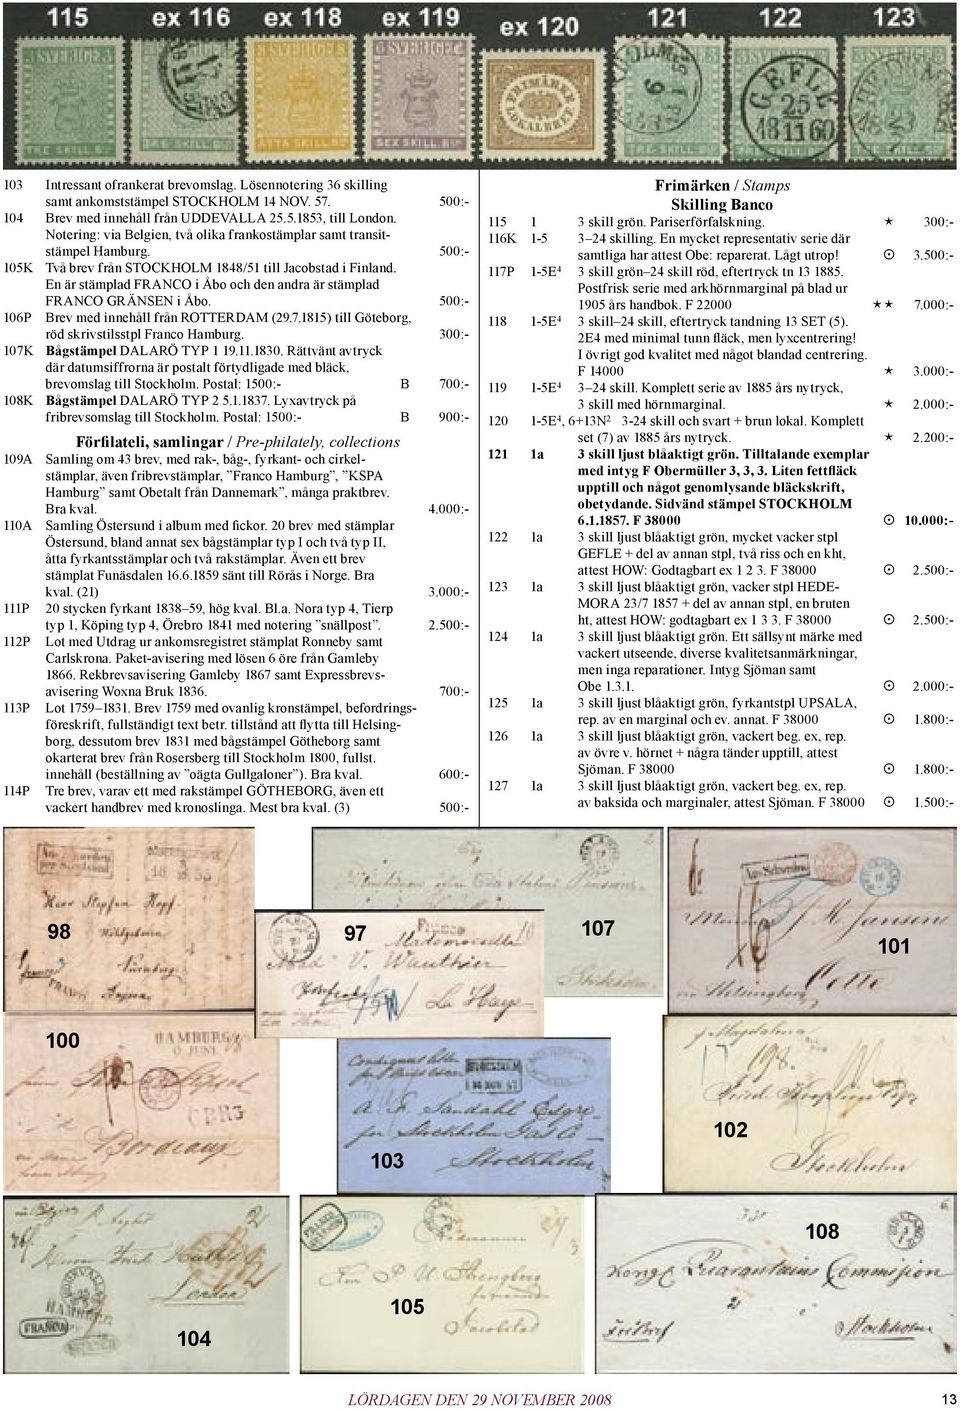 115 ex 116 ex 118 ex 119 ex 120 121 122 123
103 Intressant ofrankerat brevomslag. Lösennotering 36 skilling
samt ankomststämpel STOCKHOLM 14 NOV. 57. 500:-
104 Brev med innehåll från UDDEVALLA 25.5.1853, till London.
Notering: via Belgien, två olika frankostämplar samt transit-
stämpel Hamburg. 500:-
105K Två brev från STOCKHOLM 1848/51 till Jacobstad i Finland.
En är stämplad FRANCO i Åbo och den andra är stämplad
FRANCO GRÄNSEN i Åbo. 500:-
106P Brev med innehåll från ROTTERDAM (29.7.1815) till Göteborg,
röd skrivstilsstpl Franco Hamburg. 300:-
107K Bågstämpel DALARÖ TYP 1 19.11.1830. Rättvänt avtryck
där datumsiffrorna är postalt förtydligade med bläck,
brevomslag till Stockholm. Postal: 1500:- B 700:-
108K Bågstämpel DALARÖ TYP 2 5.1.1837. Lyxavtryck på
fribrevsomslag till Stockholm. Postal: 1500:- B 900:-
Förfilateli, samlingar / Pre-philately, collections
109A Samling om 43 brev, med rak-, båg-, fyrkant- och cirkel-
stämplar, även fribrevstämplar, ”Franco Hamburg”, ”KSPA
Hamburg” samt Obetalt från Dannemark”, många praktbrev.
Bra kval. 4.000:-
110A Samling Östersund i album med fickor. 20 brev med stämplar
Östersund, bland annat sex bågstämplar typ I och två typ II,
åtta fyrkantsstämplar och två rakstämplar. Även ett brev
stämplat Funäsdalen 16.6.1859 sänt till Rörås i Norge. Bra
kval. (21) 3.000:-
111P 20 stycken fyrkant 1838–59, hög kval. Bl.a. Nora typ 4, Tierp
typ 1, Köping typ 4, Örebro 1841 med notering ”snällpost”. 2.500:-
112P Lot med Utdrag ur ankomsregistret stämplat Ronneby samt
Carlskrona. Paket-avisering med lösen 6 öre från Gamleby
1866. Rekbrevsavisering Gamleby 1867 samt Expressbrevs-
avisering Woxna Bruk 1836. 700:-
113P Lot 1759–1831. Brev 1759 med ovanlig kronstämpel, befordrings-
föreskrift, fullständigt text betr. tillstånd att flytta till Helsing-
borg, dessutom brev 1831 med bågstämpel Götheborg samt
okarterat brev från Rosersberg till Stockholm 1800, fullst.
innehåll (beställning av ”oägta Gullgaloner”). Bra kval. 600:-
114P Tre brev, varav ett med rakstämpel GÖTHEBORG, även ett
vackert handbrev med kronoslinga. Mest bra kval. (3) 500:-
Frimärken / Stamps
Skilling Banco
115 1 3 skill grön. Pariserförfalskning. ★ 300:-
116K 1-5 3–24 skilling. En mycket representativ serie där
samtliga har attest Obe: reparerat. Lågt utrop! ⊙ 3.500:-
117P 1-5E4 3 skill grön–24 skill röd, eftertryck tn 13 1885.
Postfrisk serie med arkhörnmarginal på blad ur
1905 års handbok. F 22000 ★★ 7.000:-
118 1-5E4 3 skill–24 skill, eftertryck tandning 13 SET (5).
2E4 med minimal tunn fläck, men lyxcentrering!
I övrigt god kvalitet med något blandad centrering.
F 14000 ★ 3.000:-
119 1-5E4 3–24 skill. Komplett serie av 1885 års nytryck,
3 skill med hörnmarginal. ★ 2.000:-
120 1-5E4, 6+13N2 3-24 skill och svart + brun lokal. Komplett
set (7) av 1885 års nytryck. ★ 2.200:-
121 1a 3 skill ljust blåaktigt grön. Tilltalande exemplar
med intyg F Obermüller 3, 3, 3. Liten fettfläck
upptill och något genomlysande bläckskrift,
obetydande. Sidvänd stämpel STOCKHOLM
6.1.1857. F 38000 ⊙ 10.000:-
122 1a 3 skill ljust blåaktigt grön, mycket vacker stpl
GEFLE + del av annan stpl, två riss och en kht,
attest HOW: Godtagbart ex 1 2 3. F 38000 ⊙ 2.500:-
123 1a 3 skill ljust blåaktigt grön, vacker stpl HEDE-
MORA 23/7 1857 + del av annan stpl, en bruten
ht, attest HOW: godtagbart ex 1 3 3. F 38000 ⊙ 2.500:-
124 1a 3 skill ljust blåaktigt grön. Ett sällsynt märke med
vackert utseende, diverse kvalitetsanmärkningar,
men inga reparationer. Intyg Sjöman samt
Obe 1.3.1. ⊙ 2.000:-
125 1a 3 skill ljust blåaktigt grön, fyrkantstpl UPSALA,
rep. av en marginal och ev. annat. F 38000 ⊙ 1.800:-
126 1a 3 skill ljust blåaktigt grön, vackert beg. ex, rep.
av övre v. hörnet + några tänder upptill, attest
Sjöman. F 38000 ⊙ 1.800:-
127 1a 3 skill ljust blåaktigt grön, vackert beg. ex, rep.
av baksida och marginaler, attest Sjöman. F 38000 ⊙ 1.500:-
98
97
107
101
100
103
102
108
105
104
LÖRDAGEN DEN 29 NOVEMBER 2008 13